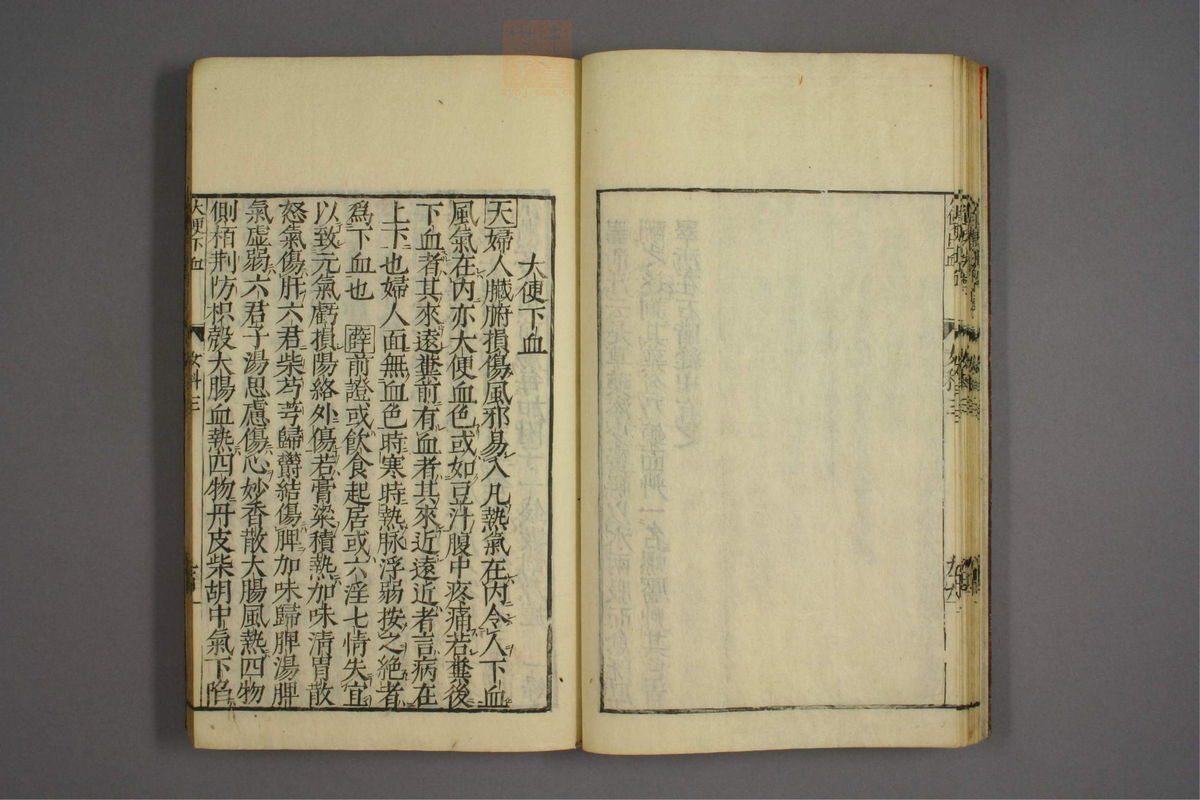 大便下血
大婦人臟腑損傷風邪易入凡熱氣在内令人下血
風氣在内亦大便血色或如豆汁腹中疼痛若糞後
下血者其來遠糞前有血者其來近遠近者言病在
上下也婦人面無血色時寒時熱脉浮弱按之絶者
爲下血也 薛前證或飲食起居或六淫七情失宜
以致元氣虧損陽絡外傷若膏粱積熱加味清胃散
怒氣傷肝六君柴芍芎歸鬱結傷脾加味歸脾湯脾
氣虚弱六君子湯思慮傷心妙香散大腸風熱四物
側栢荆防枳殻大腸血熱四物丹皮柴胡中氣下陷
大便下血 女科三